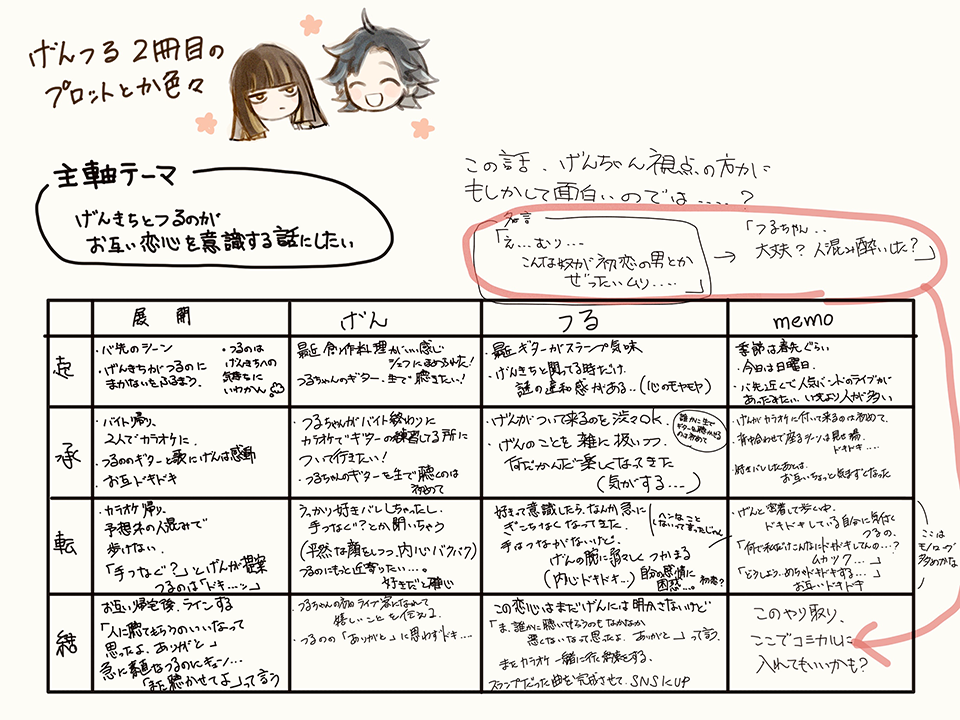 げんつる 2冊目の
プロットとか色々
主軸テーマ
げんきちとつるのが
お互い恋心を意識する話にしたい
この話、げんちゃん視点の方がに
もしかして面白いのでは……?
名言
「え…むり…
こんな奴が初恋の男とか
ぜったいムリ……」
→
「つるちゃん..
大丈夫? 人混み酔いした?」
展開
げん
つる
memo
起
・バ先のシーン
・げんきちがつるのに
まかないをふるまう。
・つるのは
げんきちへの
気持ちに
いわかん。
最近 創作料理がいい感じ
シェフにほめられた!
つるちゃんのギター、生で聴きたい!
・最近ギターがスランプ気味
・げんきちと関ってる時だけ
謎の違和感がある..(心のモヤモヤ)
季節は春先ぐらい
・今日は日曜日。
・バ先近くで人気バンドのライブが
あったみたい。いつもより人が多い
承
・バイト帰り、
2人でカラオケに。
・つるののギターと歌にげんは感動
・お互ドキドキ
つるちゃんがバイト終わりに
カラオケでギターの練習してる所に
ついて行きたい!
・つるちゃんのギターを生で聴くのは
初めて
・げんがついて来るのを渋々OK。
誰かに生で
ギターを聴かせる
のは初めて
・げんのことを雑に扱いつつ
何だかんだで楽しくなってきた
(気がする…)
・げんがカラオケに付いて来るのは初めて、
背中合わせで座るシーンは見せ場。
ドキドキ……
・好きバレしたあとは、
お互いちょっと気まずくなった
転
・カラオケ帰り、
予想外の人混みで
歩けない。
「手つなぐ?」とげんが提案
つるのは「ドキ…ッ」
うっかり好きバレしちゃったし、
手つなぐ?とか聞いちゃう
(平然な顔をしつつ、内心バクバク)
つるのにもっと近寄りたい…。
好きだと確心
好きって意識したら、なんか急に
ぎこちなくなってきた。
ヘンなこと
しないでってきたじゃん
手はつながないけど、
げんの腕に弱々しくつかまる
(内心ドキドキ…)
自分の感情に
困惑…。
初恋?
・げんと密着して歩く中、
ドキドキしている自分に気付く
つるの、
「何で私だけこんなにドキドキしてんの…?
ムカツク…」
「どうしよう…めちゃドキドキする…」
お互いドキドキ
ここは
モノローグ
多めかな
結
お互い帰宅後、ラインする
「人に聴いてもらうのいいなって
思ったよ、ありがと」
急に素直なつるのにキュン…
「また聴かせてよ」って言う
・つるちゃんの初ライブ客になれて
嬉しいことを伝える。
・つるのの「ありがと」に思わずドキ…
この恋心はまだげんには明かさないけど
「ま、誰かに聴いてもらうのもなかなか
悪くないなって思ったよ、ありがと」って言う、
またカラオケ一緒に行く約束をする。
スランプだった曲を完成させて、SNSにUP
このやり取り、
ここでコミカルに
入れてもいいかも?